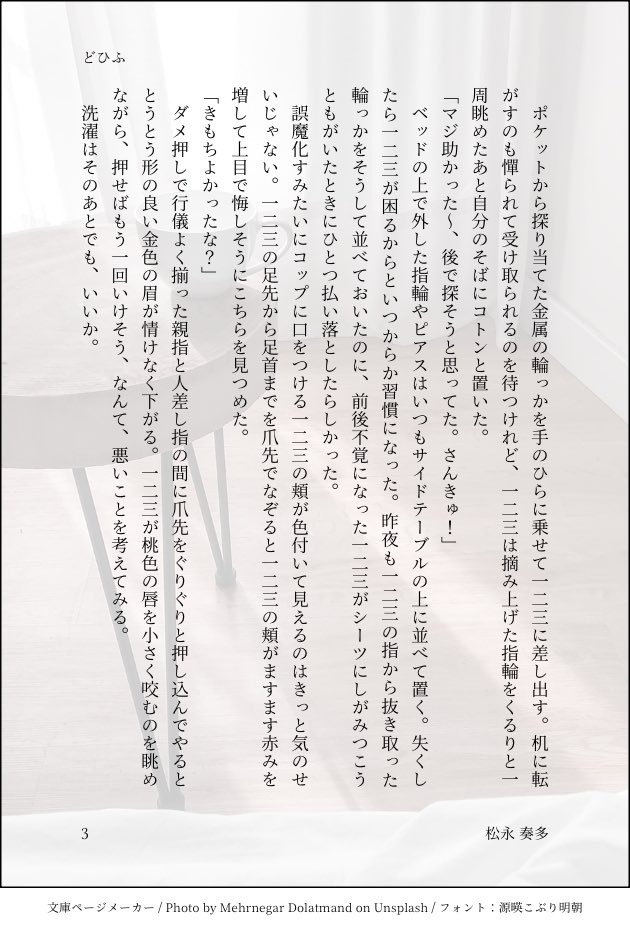 どひふ
　ポケットから探り当てた金属の輪っかを手のひらに乗せて一二三に差し出す。机に転
がすのも憚られて受け取られるのを待つけれど、一二三は摘み上げた指輪をくるりと一
周眺めたあと自分のそばにコトンと置いた。
「マジ助かった〜、後で探そうと思ってた。さんきゅ！」
　ベッドの上で外した指輪やピアスはいつもサイドテーブルの上に並べて置く。失くし
たら一二三が困るからといつからか習慣になった。昨夜も一二三の指から抜き取った
輪っかをそうして並べておいたのに、前後不覚になった一二三がシーツにしがみつこう
ともがいたときにひとつ払い落としたらしかった。
　誤魔化すみたいにコップに口をつける一二三の頬が色付いて見えるのはきっと気のせ
いじゃない。一二三の足先から足首までを爪先でなぞると一二三の頬がますます赤みを
増して上目で悔しそうにこちらを見つめた。
「きもちよかったな？」
　ダメ押しで行儀よく揃った親指と人差し指の間に爪先をぐりぐりと押し込んでやると
とうとう形の良い金色の眉が情けなく下がる。一二三が桃色の唇を小さく咬むのを眺め
ながら、押せばもう一回いけそう、なんて、悪いことを考えてみる。
　洗濯はそのあとでも、いいか。
松永 奏多
3
文庫ページメーカー / Photo by Mehrnegar Dolatmand on Unsplash / フォント：源暎こぶり明朝